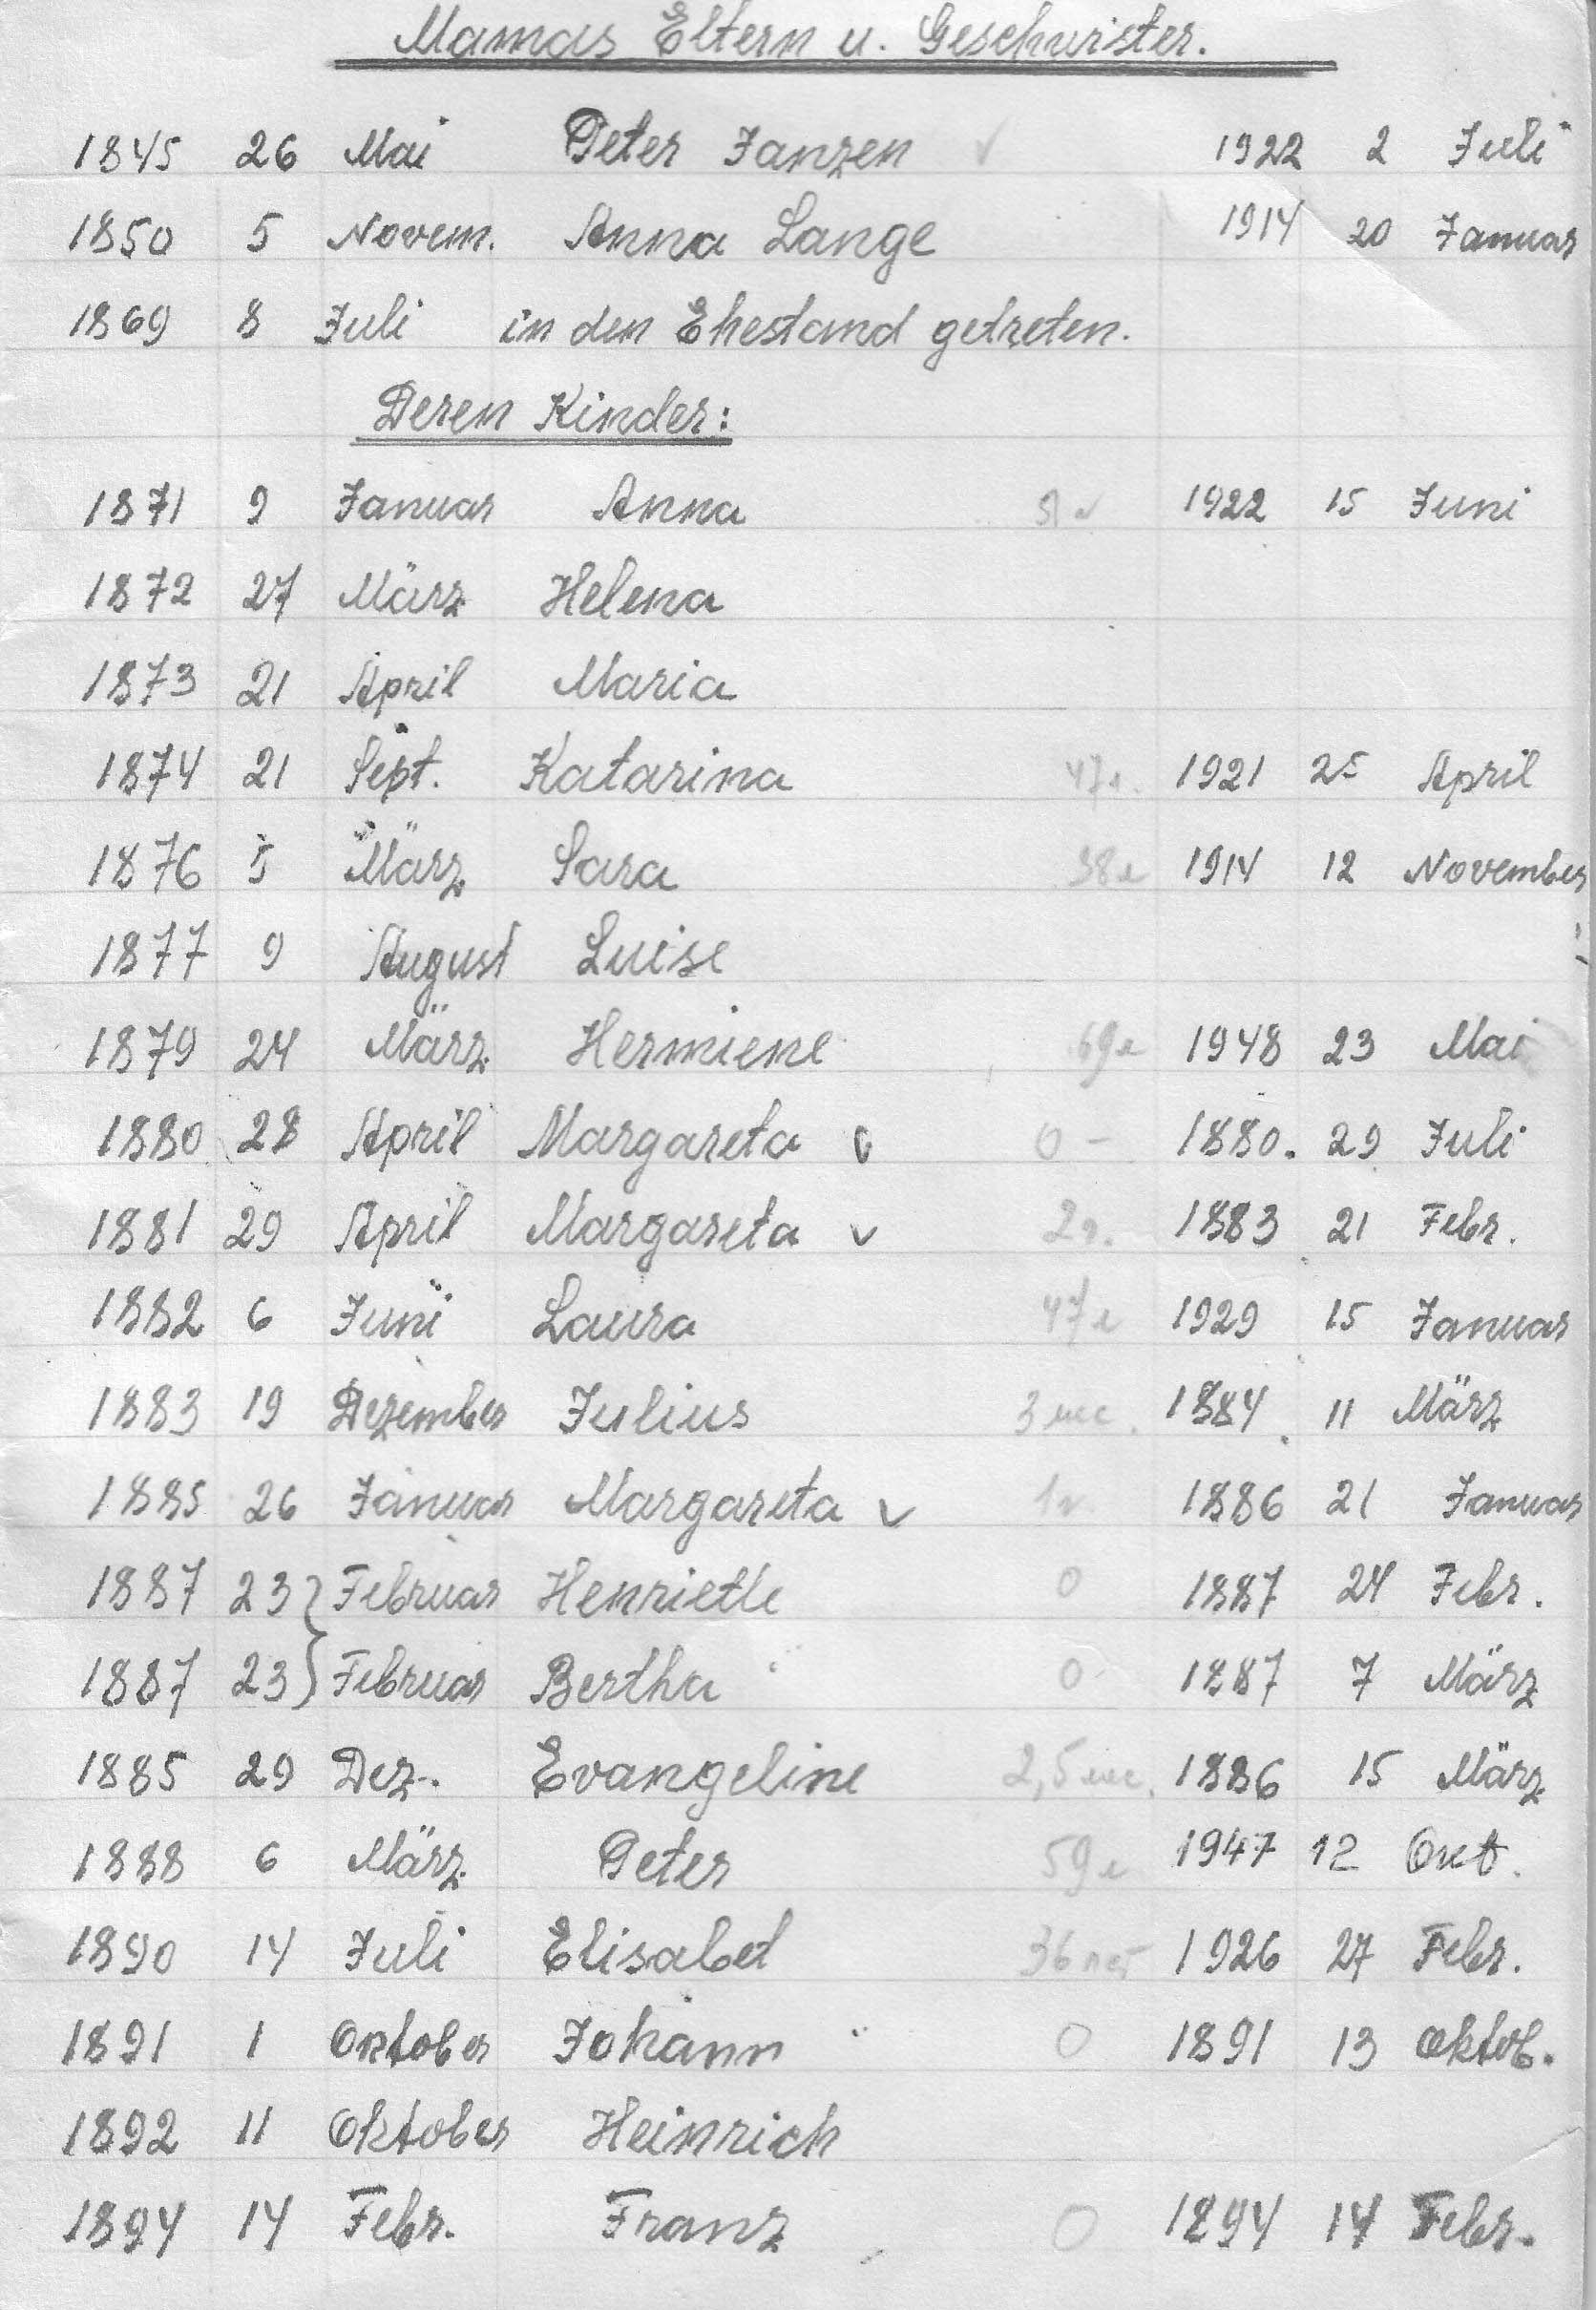 Mamas Eltern u. Geschwister.
1845 26 Mai Peter Janzen ✓ 1922 2 Juli
1850 5 Novem. Anna Lange 1914 20 Januar
1869 8 Juli in den Ehestand getreten.
Deren Kinder:
1871 9 Januar Anna 1922 15 Juni
1872 27 März Helena
1873 21 April Maria
1874 21 Sept. Katarina 47 1921 25 April
1876 5 März Sara 38 1914 12 November
1877 9 August Luise
1879 24 März Hermiene 69 1948 23 Mai
1880 28 April Margareta 0 - 1880. 29 Juli
1881 29 April Margareta v 2 1883 21 Febr.
1882 6 Juni Laura 47 1929 15 Januar
1883 19 Dezember Julius 3 мес. 1884 11 März
1885 26 Januar Margareta v 1 1886 21 Januar
1887 23 } Februar Henriette 0 1887 24 Febr.
1887 23 } Februar Bertha 0 1887 7 März
1885 29 Dez. Evangeline 2,5 мес. 1886 15 März
1888 6 März Peter 59 1947 12 Okt.
1890 14 Juli Elisabet 36 лет 1926 27 Febr.
1891 1 Oktober Johann 0 1891 13 Oktob.
1892 11 Oktober Heinrich
1894 14 Febr. Franz 0 1894 14 Febr.